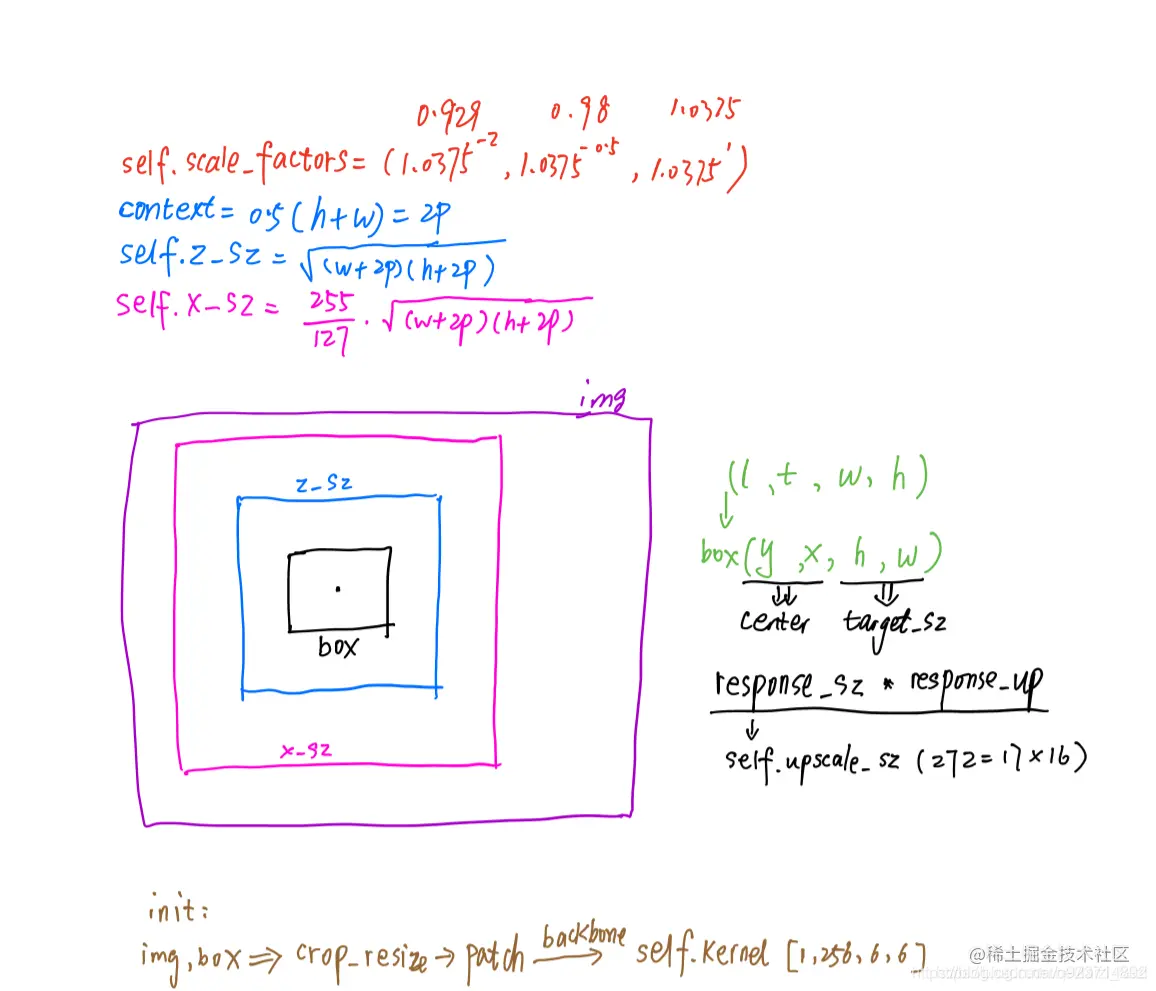 0.929 0.98 1.0375
self.scale_factors= (1.0375⁻², 1.0375⁻⁰·⁵, 1.0375¹)
context= 0.5(h+w)= 2p
self.z_sz = √(w+2p)(h+2p)
self.x_sz = 255/127 · √(w+2p)(h+2p)
img
z_sz
box
x_sz
(l, t, w, h)
↓
box(y, x, h, w)
⇓ ⇓
center target_sz
response_sz * response_up
↓
self.upscale_sz (272=17×16)
init:
img, box ⇒ crop_resize → patch backbone→ self.kernel [1,256,6,6]
@稀土掘金技术社区